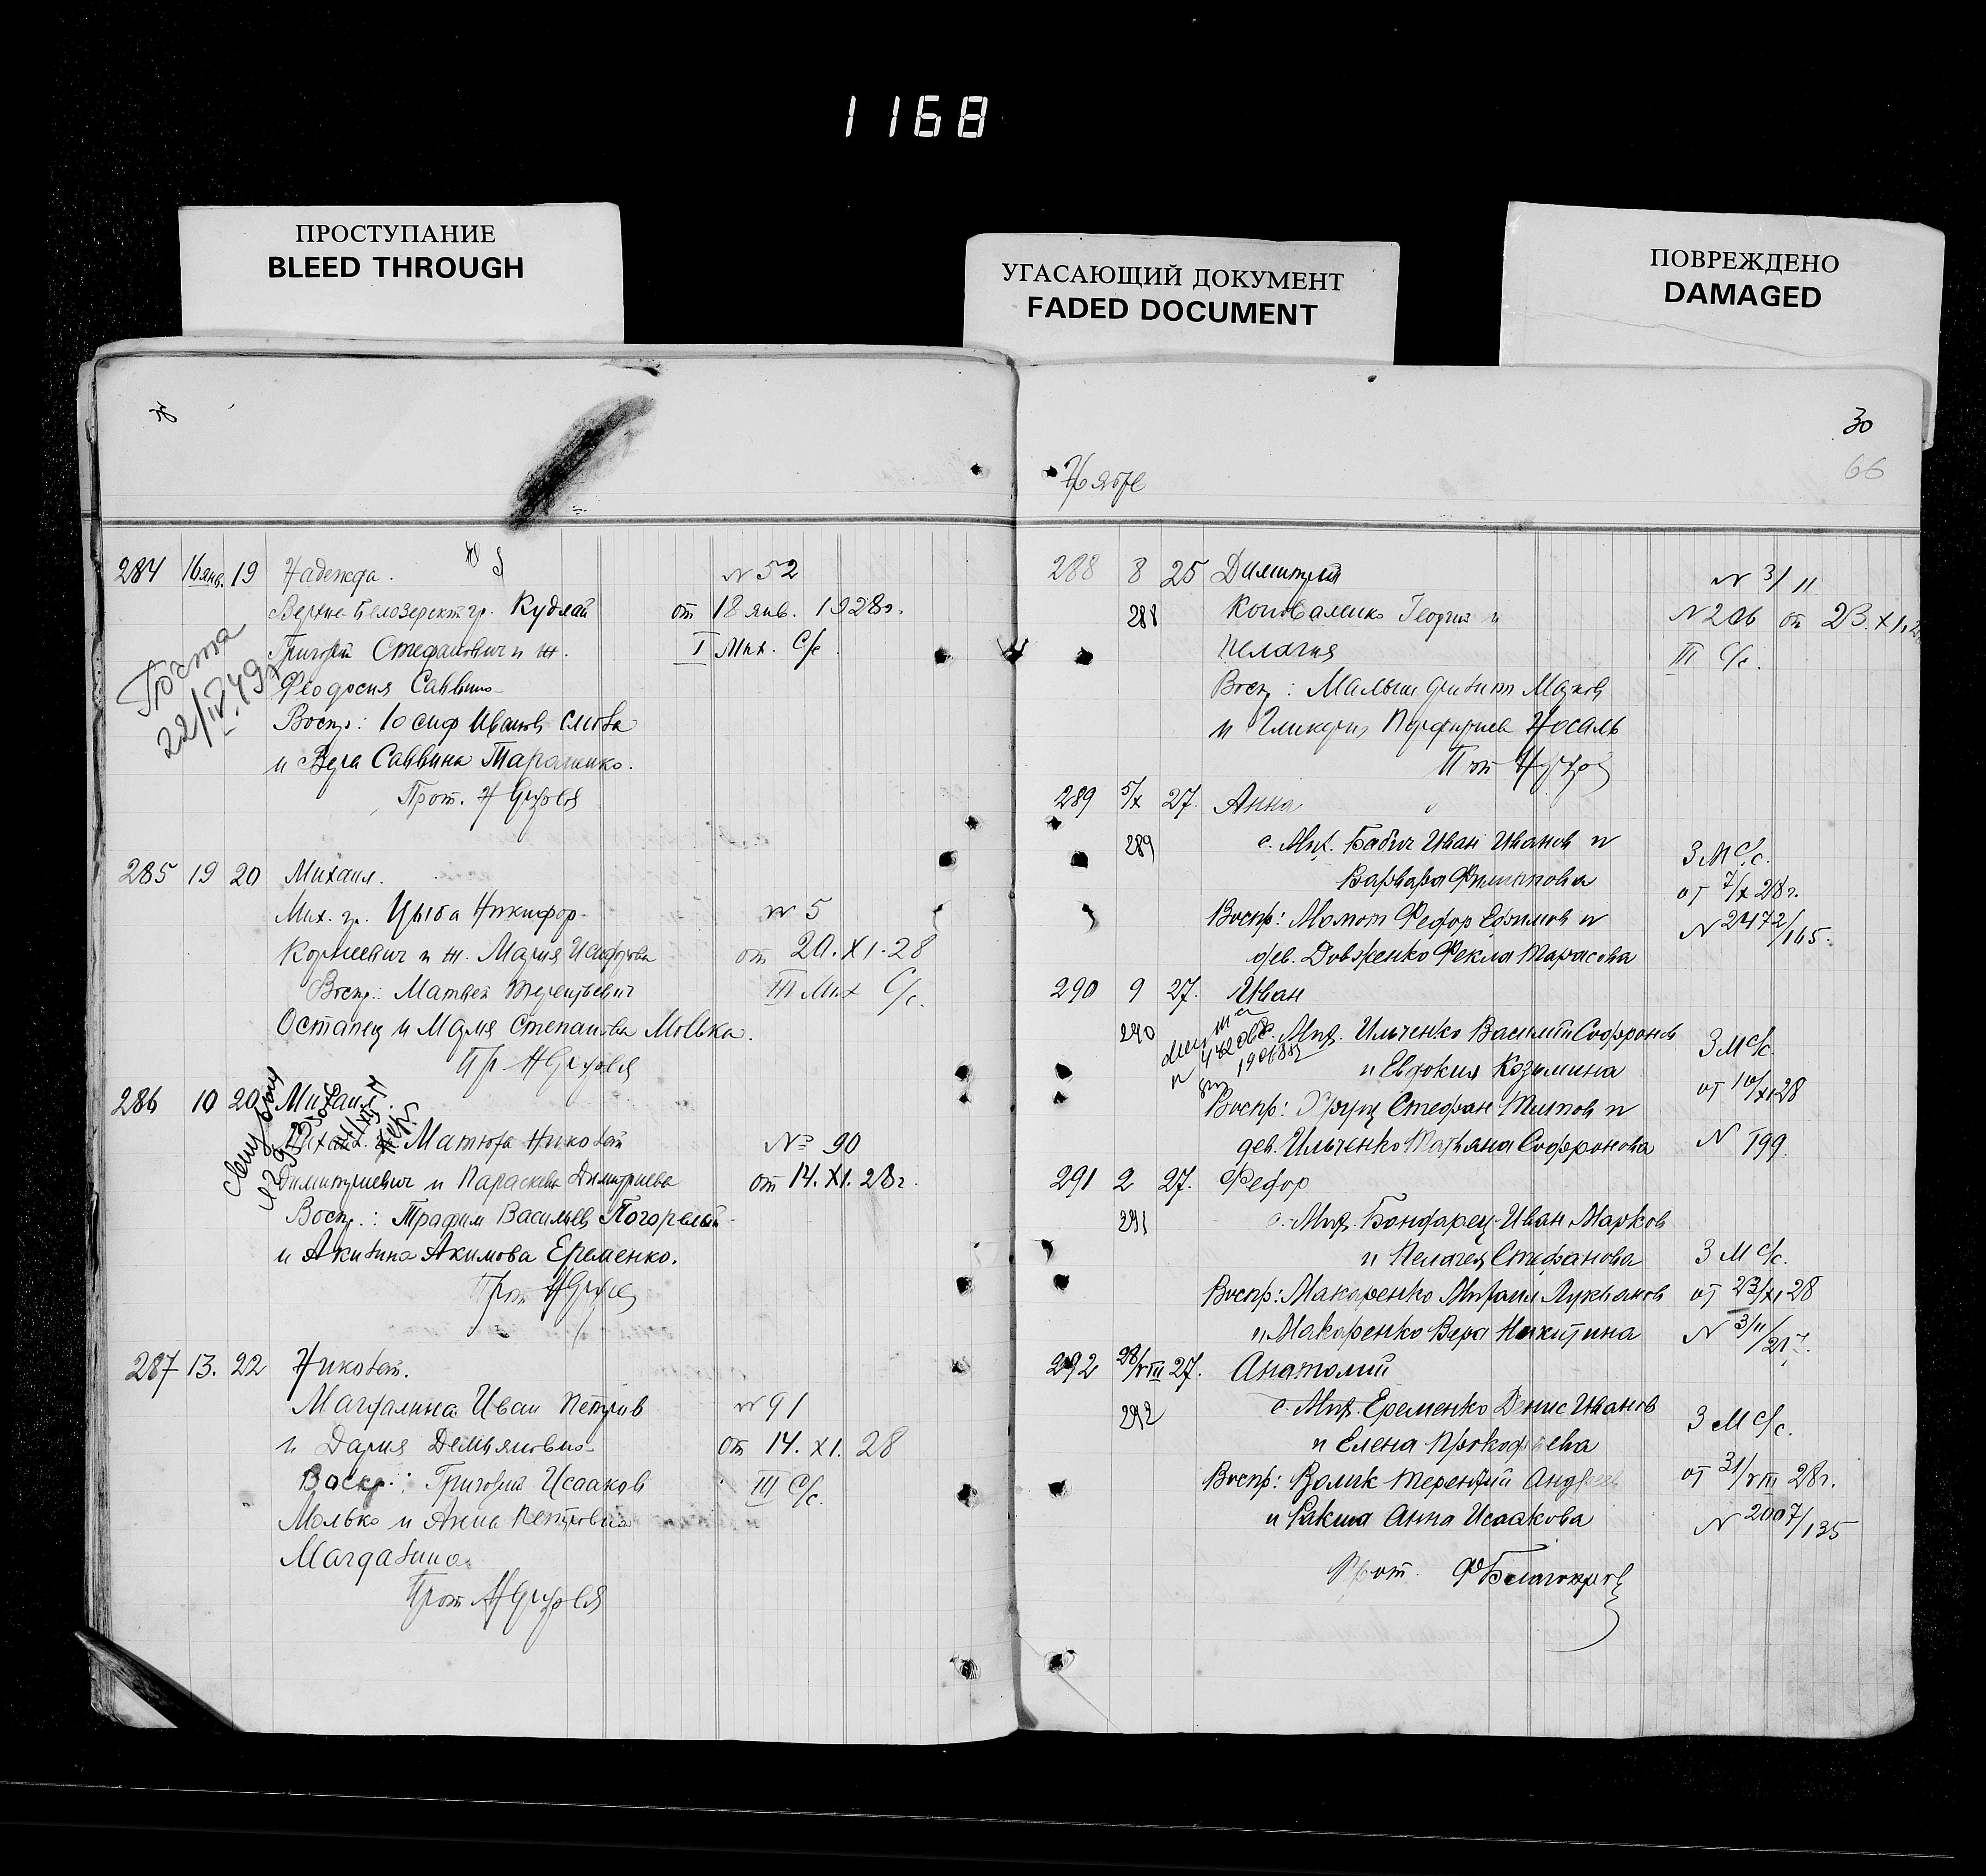 1168
ПРОСТУПАНИЕ
BLEED THROUGH
УГАСАЮЩИЙ ДОКУМЕНТ
FADED DOCUMENT
ПОВРЕЖДЕНО
DAMAGED
284 16 янв. 19 Надежда. № 52
гр. Кудлай от 18 янв. 1928г.
Григорий Стефанович и ж. I Мих. С/с
Феодосия Саввина
22/IV.49
Воспр: Иосиф Иванов
и Вера Саввина Тараненко.
Прот.
285 19 20 Михаил.
Мих. гр. Цыба Никифор № 5
Корнеевич и ж. Мария от 20.XI.28
Воспр: Матвей Терентьевич III Мих С/с.
Остапец и Мария Степанова Молька.
Пр
286 10 20 Михаил.
Матюха Николай № 90
Димитриевич и Параскева Димитриева от 14.XI.28г.
Воспр.: Трафим Васильев Погорелый
и Акилина Акимова Еременко.
Прот
287 13. 22 Николай.
Магдалина Иван Петров № 91
и Дария Демьяновна от 14.XI.28
Воспр: Григорий Исааков III С/с.
Молько и Анна Петровна
Магдалина.
Прот
30
66
Ноябрь
288 8 25 Димитрий № 3/11
288 Коноваленко Георгий и № 206 от 23.XI.2
Пелагия III С/с.
Воспр: Малыш
и Гликерия Порфириева Носаль
Прот
289 5/X 27. Анна
289 с. Мих. Бабич Иван Иванов и 3 М С/с.
Варвара Филиппова от 7/X 28г.
Воспр: Момот Федор Ефимов и № 2472/165.
дев. Довженко Фекла Тарасова
290 9 27. Иван
290 Мих. Ильченко Василий Софронов 3 М С/с.
и Евдокия Козьмина от 10/XI 28
Воспр: Стефан Титов и
дев. Ильченко Татьяна Софронова № 199
291 2 27. Федор
291 с. Мих. Бондарец Иван Марков
и Пелагея Стефанова 3 М С/с.
Воспр: Макаренко Михаил Лукьянов от 23/XI 28
и Макаренко Вера Никитина № 3/11/217.
292 28/VIII 27. Анатолий
292 с. Мих. Еременко Денис Иванов 3 М С/с.
и Елена Прокофьева
Воспр: Волик Терентий Андреев от 31/VIII 28г.
и Ракша Анна Исаакова № 2007/135
Прот.